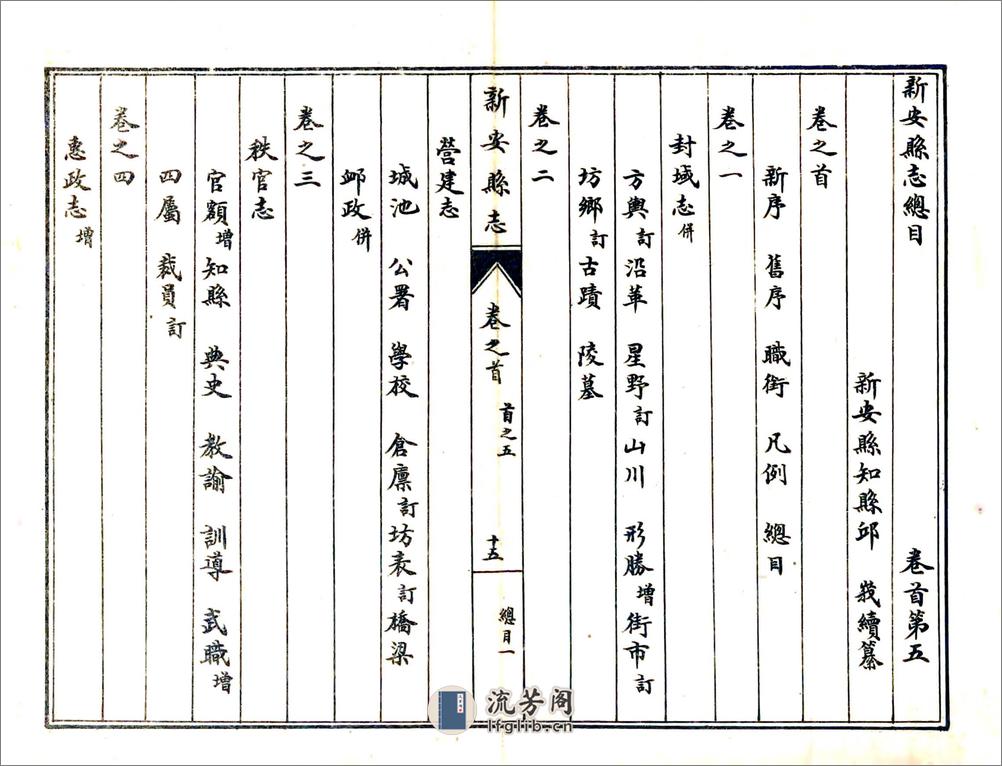 新安縣志總目 卷首第五
新安縣知縣邱 峩續纂
卷之首
新序 舊序 職銜 凡例 總目
卷之一
封域志併
方輿訂沿革 星野訂山川 形勝增街市訂
坊鄉訂古蹟 陵墓
卷之二
新安縣志 卷之首 首之五 十五 總目一
營建志
城池 公署 學校 倉廩訂坊表訂橋梁
郵政併
卷之三
秩官志
官額增知縣 典史 教諭 訓導 武職增
四屬 裁員訂
卷之四
惠政志增
流芳阁
lfglib.cn